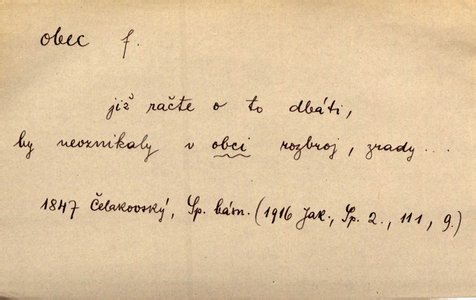 obec f.
již račte o to dbáti,
by nevznikaly v obci rozbroj, zrady...
1847 Čelakovský, Sp. bás. (1916 Jak., Sp. 2., 111, 9.)